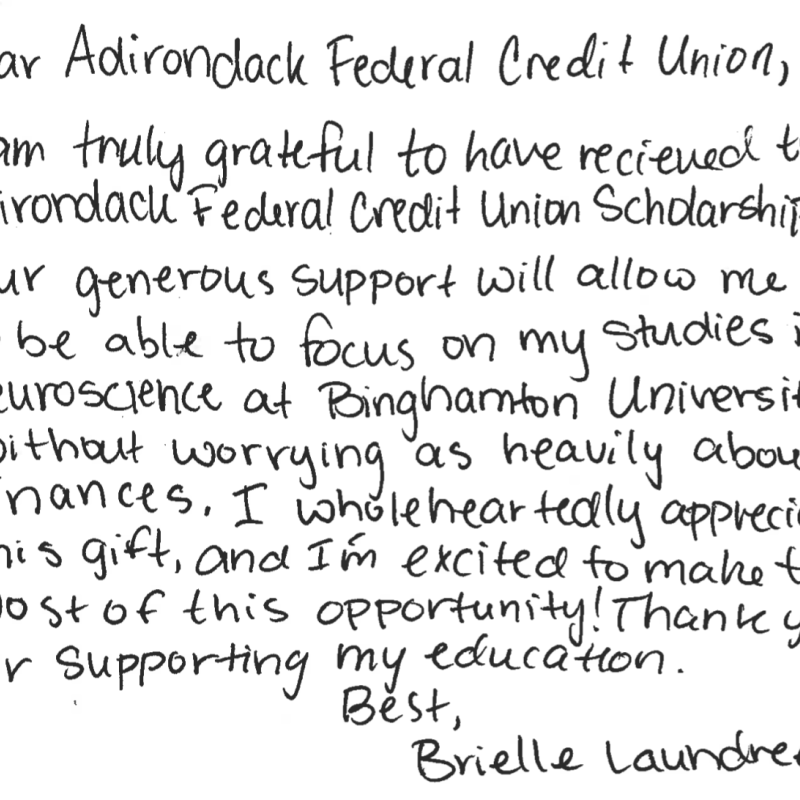 ar Adirondack Federal Credit Union,
am truly grateful to have recieved t
irondack Federal Credit Union Scholarship
ur generous support will allow me
be able to focus on my studies i
euroscience at Binghamton Universit
ithout worrying as heavily abou
nances. I wholeheartedly appreci
his gift, and I'm excited to make t
ost of this opportunity! Thank y
r supporting my education.
Best,
Brielle Laundre